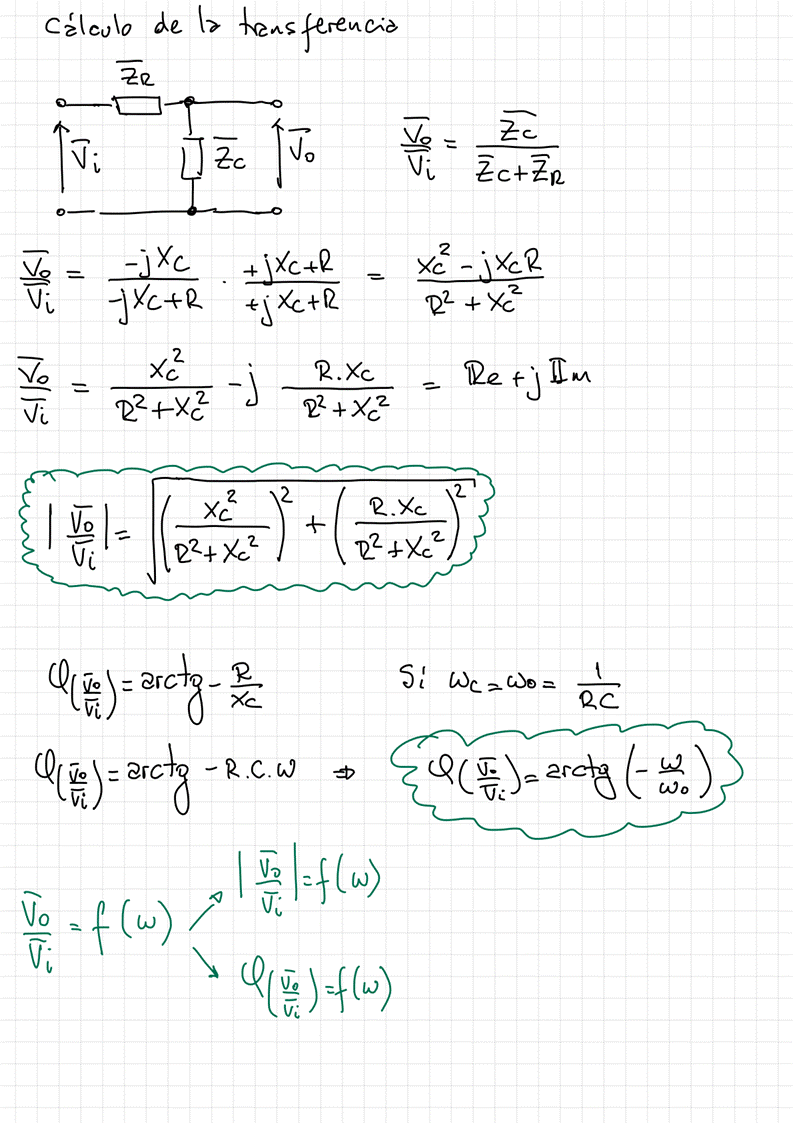 Cálculo de la transferencia
Z̅R
V̅i Z̅C V̅o
V̅o/V̅i = Z̅C / (Z̅C + Z̅R)
V̅o/V̅i = (-jXC / (-jXC + R)) · ((+jXC + R) / (+jXC + R)) = (XC² - jXCR) / (R² + XC²)
V̅o/V̅i = XC² / (R² + XC²) - j (R.XC) / (R² + XC²) = Re + j Im
|V̅o/V̅i| = √((XC² / (R² + XC²))² + (R.XC / (R² + XC²))²)
φ(V̅o/V̅i) = arctg - R/XC
Si ωc = ωo = 1/RC
φ(V̅o/V̅i) = arctg - R.C.ω ⇒ φ(V̅o/V̅i) = arctg (-ω/ωo)
|V̅o/V̅i| = f(ω)
V̅o/V̅i = f(ω)
φ(V̅o/V̅i) = f(ω)